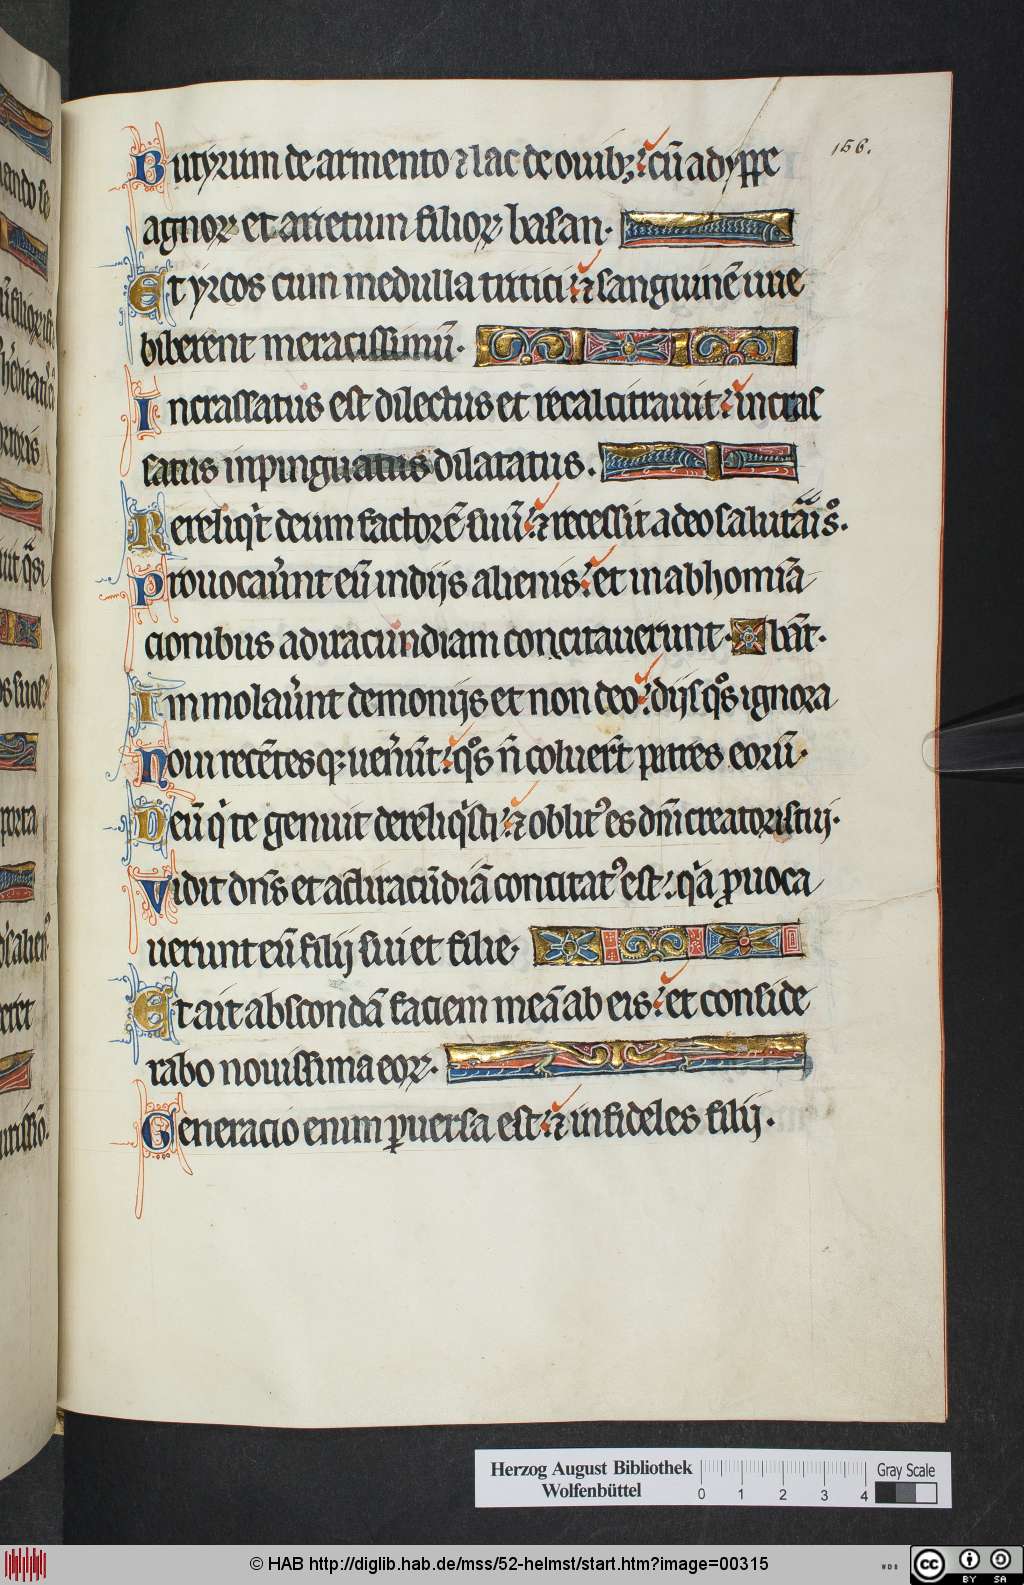 156.
Butyrum de armento ⁊ lac de ouibꝫ ⁊ cū adyppe
agnoꝝ et arietum filioꝝ basan.
Et yrcos cum medulla tritici ⁊ sanguinē uue
biberent meracissimū.
Incrassatus est dilectus et recalcitrauit incras
satus inpinguatus dilatatus.
Rereliqͥt deum factorē suū ⁊ recessit a deo salutaͣrisͦ.
Prouocaueͬnt eū in dijs alienis et in abhomīa
cionibus ad iracundiam concitauerunt. bāt.
Immolaueͬnt demonijs et non deo dijs qͦs ignora
Noui recētes qꝫ uen̾ūt qͦs n̄ coluer̄t patres eorū.
Deū qͥ te genuit dereliqͥsti ⁊ oblitꝰ es dn̄i creatoris tui.
Vidit dn̄s et ad iracūdiā concitatꝰ est qͥa ꝓuoca
uerunt eū filij sui et filie.
Et ait abscondā faciem meā ab eis et conside
rabo nouissima eoꝝ.
Generacio enim ꝑuersa est ⁊ infideles filij.
Herzog August Bibliothek
Wolfenbüttel
0 1 2 3 4
Gray Scale
© HAB http://diglib.hab.de/mss/52-helmst/start.htm?image=00315
WDB
cc BY SA